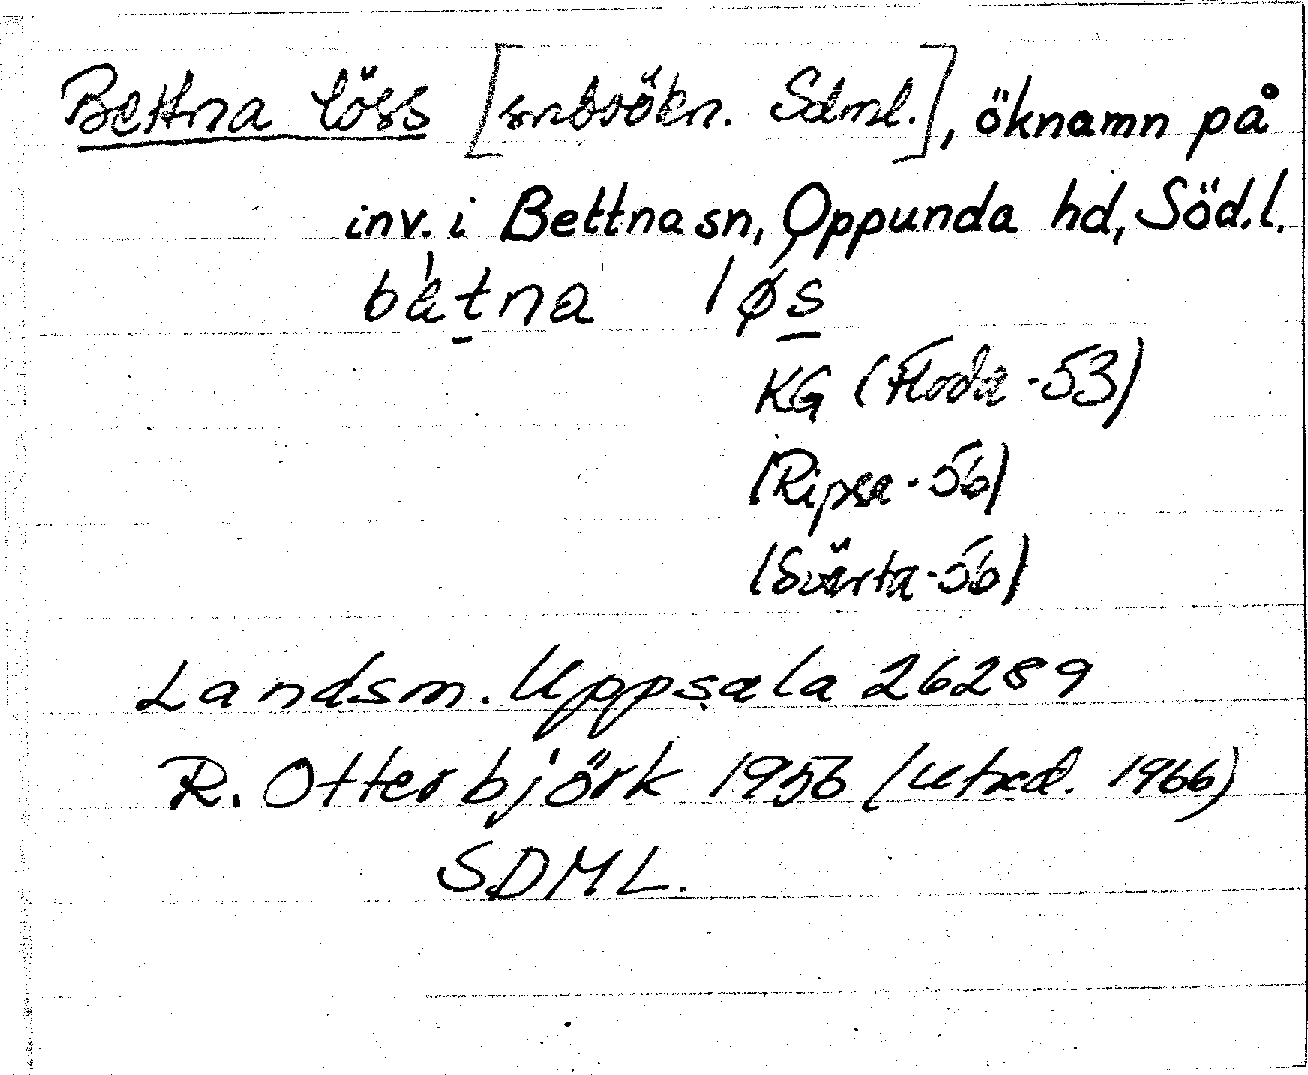 Bettna löss [snbsökn. Sdml.], öknamn på
inv. i Bettna sn, Oppunda hd, Söd.l.
bètna løs
KG (Floda -53)
(Ripsa -56)
(Svärta -56)
Landsm. Uppsala 26289
R. Otterbjörk 1956 (utxd. 1966)
SDML.